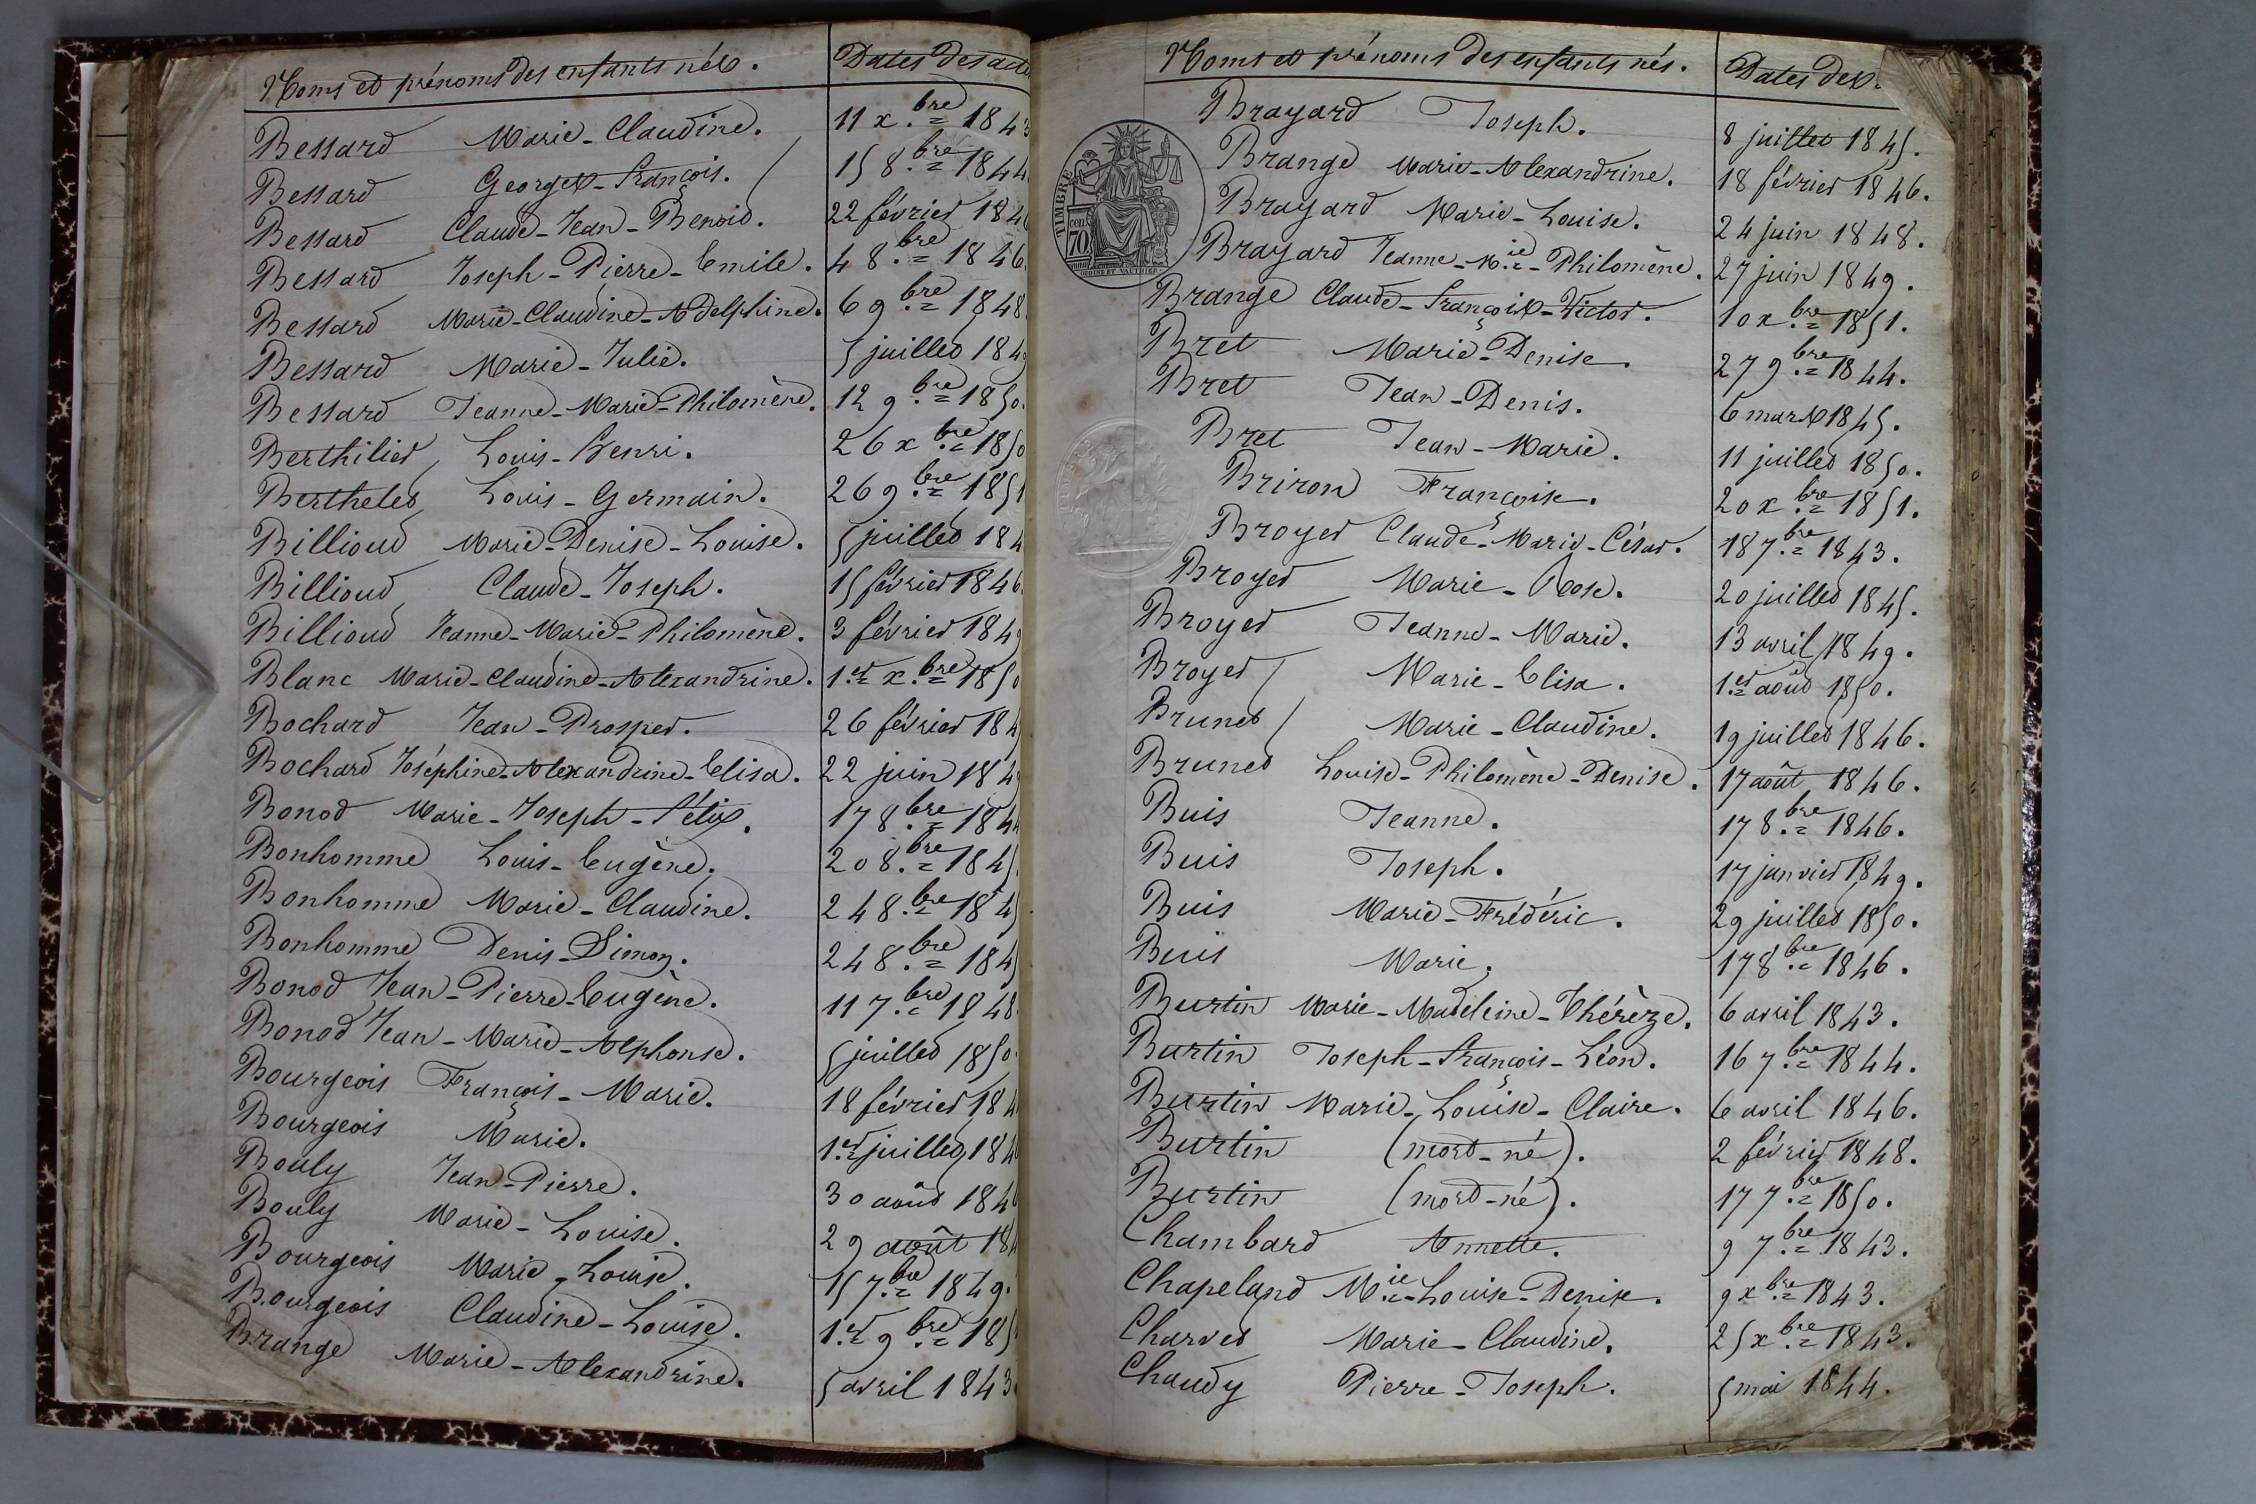 Noms et prénoms des enfants nés. Dates des acte
Bessard Marie-Claudine. 11 x.bre 1843
Bessard Georges-François. 15 8.bre 1844
Bessard Claude-Jean-Benoit. 22 février 184
Bessard Joseph-Pierre-Emile. 4 8.bre 1846
Bessard Marie-Claudine-Adelphine. 6 9.bre 1848.
Bessard Marie-Julie. 5 juillet 1849
Bessard Jeanne-Marie-Philomène. 12 9.bre 1850.
Berthilier Louis-Henri. 26 x.bre 1850
Berthelet Louis-Germain. 26 9.bre 1851
Billioud Marie-Denise-Louise. 5 juillet 184
Billioud Claude-Joseph. 15 février 1846.
Billioud Jeanne-Marie-Philomène. 3 février 1849
Blanc Marie-Claudine-Alexandrine. 1.er x.bre 1850
Bochard Jean-Prosper. 26 février 184
Bochard Joséphine-Alexandrine-Elisa. 22 juin 184
Bonod Marie-Joseph-Félix. 17 8.bre 1844
Bonhomme Louis-Eugène. 20 8.bre 1845.
Bonhomme Marie-Claudine. 24 8.bre 1845
Bonhomme Denis-Simon. 24 8.bre 1845
Bonod Jean-Pierre-Eugène. 11 7.bre 1848.
Bonod Jean-Marie-Alphonse. 5 juillet 1850.
Bourgeois François-Marie. 18 février 184
Bourgeois Marie. 1.er juillet 184
Bouly Jean-Pierre. 30 août 184
Bouly Marie-Louise. 29 août 18
Bourgeois Marie-Louise. 15 7.bre 1849.
Bourgeois Claudine-Louise. 1.er 9.bre 185
Brange Marie-Alexandrine. 5 avril 1843
Noms et prénoms des enfants nés. Dates des.
Brayard Joseph. 8 juillet 1845.
Brange Marie-Alexandrine. 18 février 1846.
Brayard Marie-Louise. 24 juin 1848.
Brayard Jeanne-M.ie-Philomène. 27 juin 1849.
Brange Claude-François-Victor. 10 x.bre 1851.
Bret Marie-Denise. 27 9.bre 1844.
Bret Jean-Denis. 6 mars 1845.
Bret Jean-Marie. 11 juillet 1850.
Briron Françoise. 20 x.bre 1851.
Broyer Claude-Marie-César. 18 7.bre 1843.
Broyer Marie-Rose. 20 juillet 1845.
Broyer Jeanne-Marie. 13 avril 1849.
Broyer Marie-Elisa. 1.er août 1850.
Brunet Marie-Claudine. 19 juillet 1846.
Brunet Louise-Philomène-Denise. 17 août 1846.
Buis Jeanne. 17 8.bre 1846.
Buis Joseph. 17 janvier 1849.
Buis Marie-Frédéric. 29 juillet 1850.
Buis Marie. 17 8.bre 1846.
Burtin Marie-Madeleine-Thérèze. 6 avril 1843.
Burtin Joseph-François-Léon. 16 7.bre 1844.
Burtin Marie-Louise-Claire. 6 avril 1846.
Burtin (mort-né). 2 février 1848.
Burtin (mort-né). 17 7.bre 1850.
Chambard Annette. 9 7.bre 1843.
Chapeland M.ie-Louise-Denise. 9 x.bre 1843.
Charvet Marie-Claudine. 25 x.bre 1843.
Chaudy Pierre-Joseph. 5 mai 1844.
TIMBRE
cen.
70